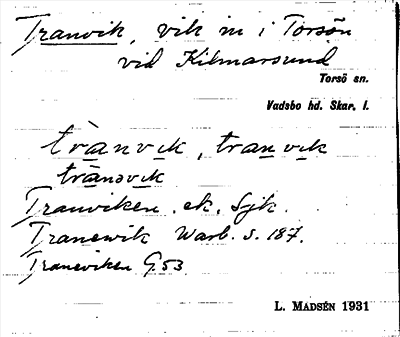 Tranvik, vik in i Torsön
vid Kilmarsund
Torsö sn.
Vadsbo hd. Skar. l.
trànvik, tranvik
trànəvik
Tranviken. ek. Sjk.
Tranewik Warb. s. 187.
Traneviken G. 53
L. MADSÉN 1931